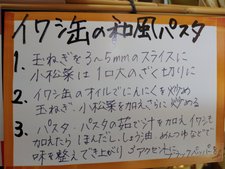 イワシ缶の和風パスタ
1. 玉ねぎを3〜5mmのスライスに
小松菜は1口大のざく切りに
2. イワシ缶のオイルでにんにくを炒め
玉ねぎ、小松菜を加えさらに炒める
3. パスタ・パスタの茹で汁を加え、イワシも
加えたらほんだし、しょう油、めんつゆなどで
味を整えてでき上がり アクセントに
ブラックペッパーを